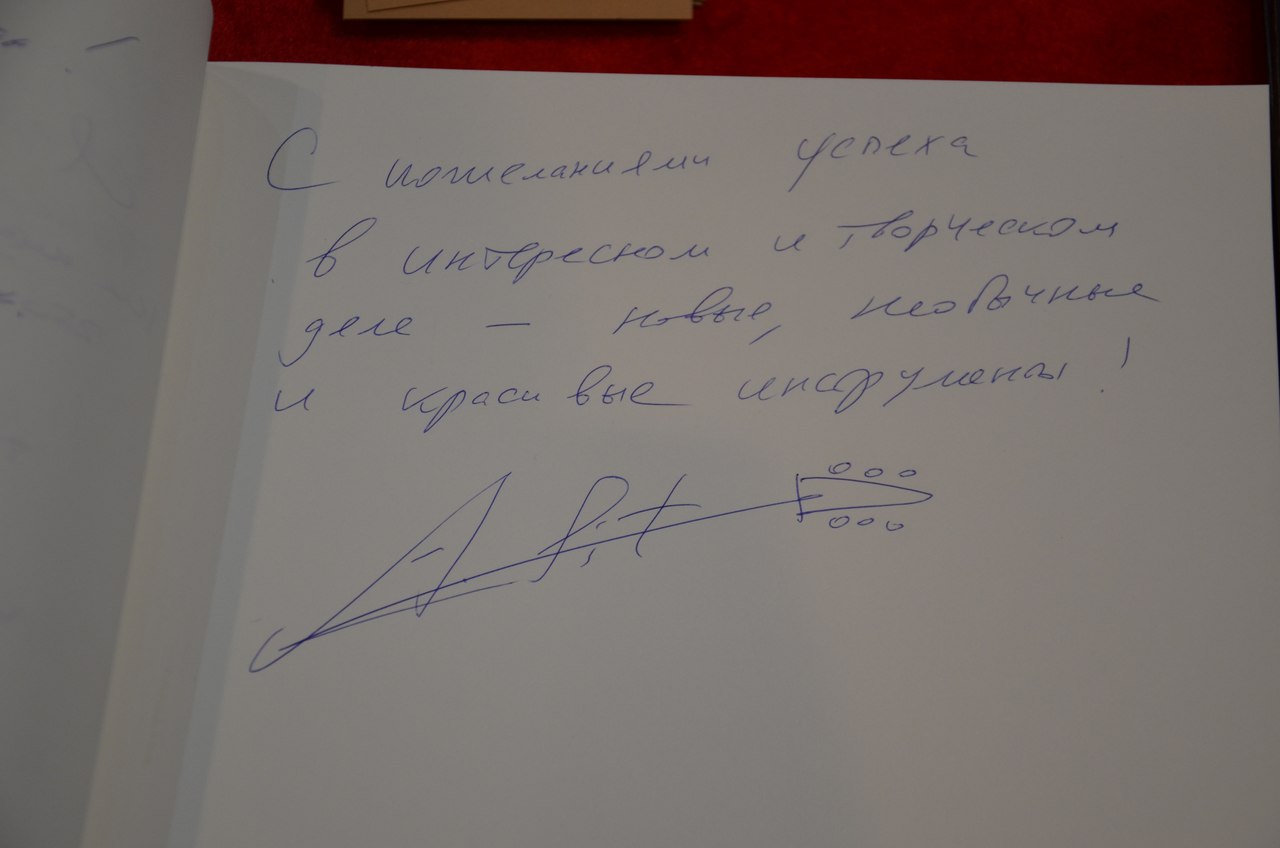 С пожеланиями успеха
в интересном и творческом
деле — новые, необычные
и красивые инструменты!